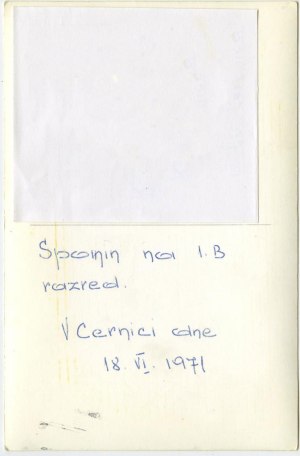 Spomin na I.B
razred.
V Cernici dne
18. VI. 1971